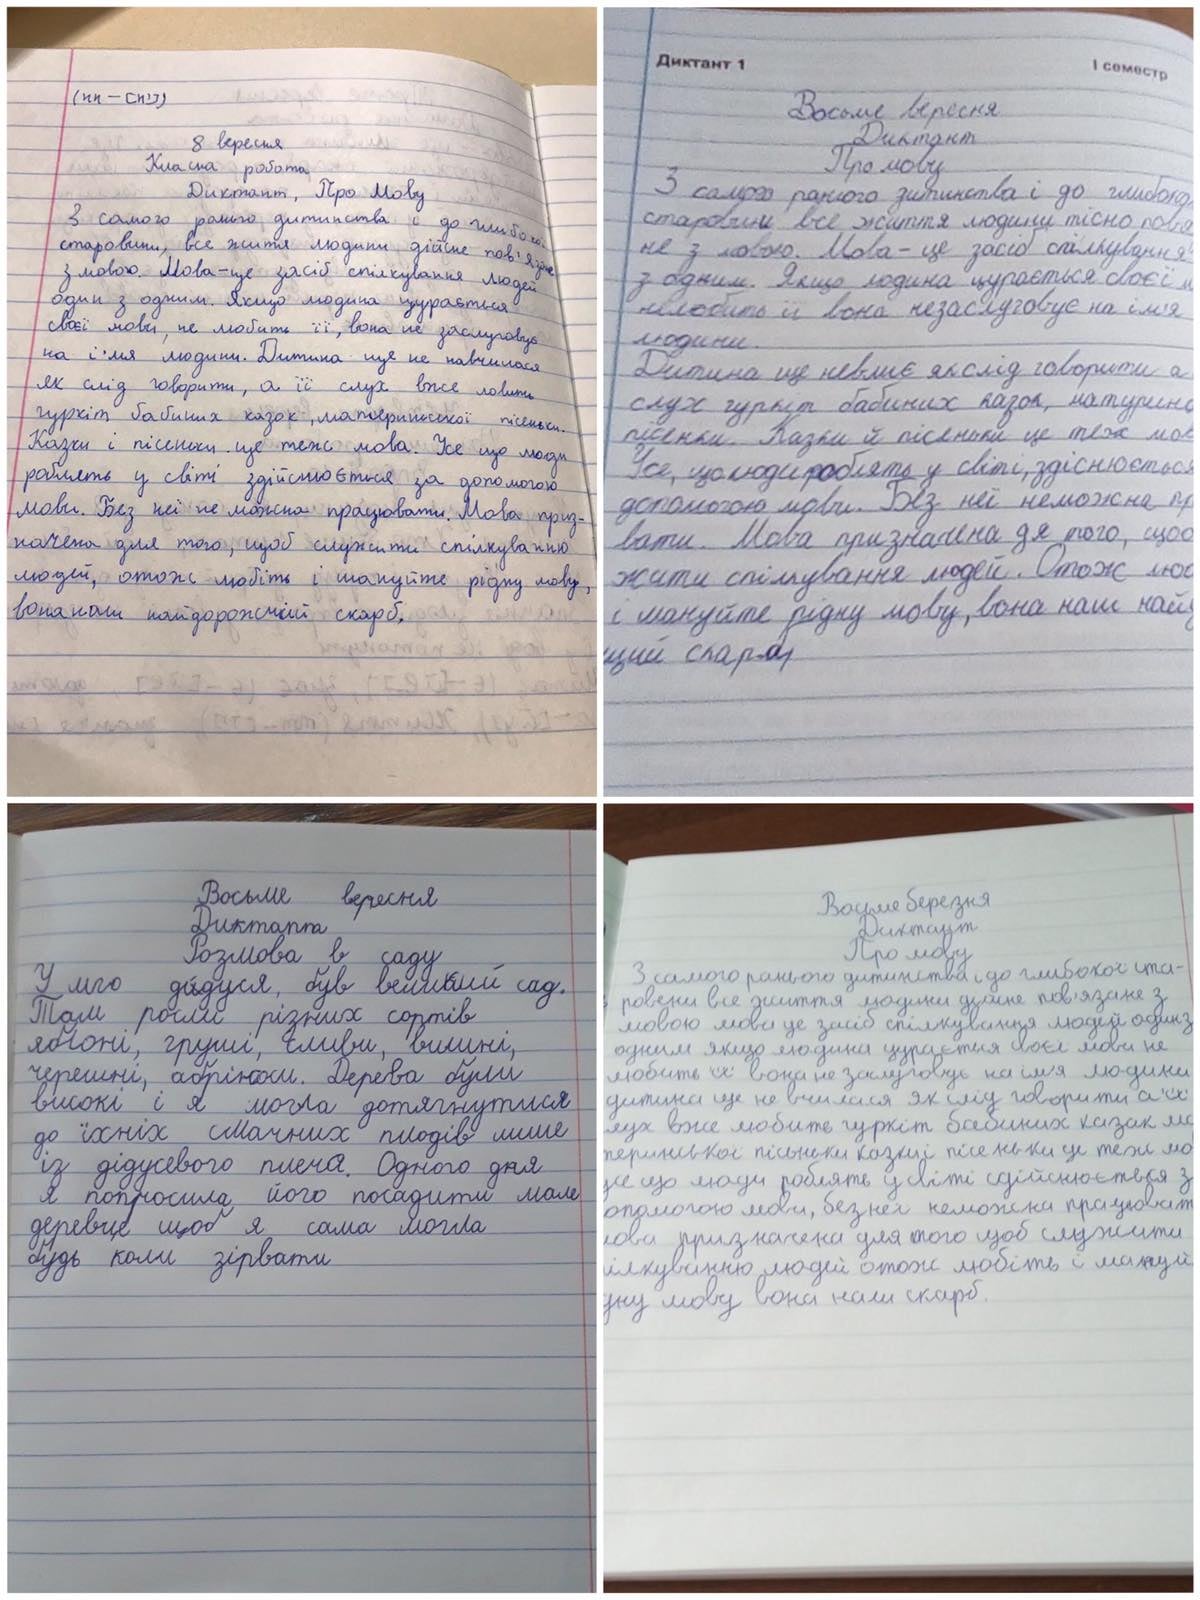 (нн – [н':])
8 вересня
Класна робота
Диктант, Про Мову
З самого раннього дитинства і до глибокої
старовини, все життя людини дійсне пов'язане
з мовою. Мова-це засіб спілкування людей
один з одним. Якщо людина цурається
своєї мови, не любить її, вона не заслуговує
на і'мя людини. Дитина ще не навчилася
як слід говорити, а її слух вже ловить
гуркіт бабиних казок, материнської пісеньки.
Казки і пісеньки це теж мова. Усе що люди
роблять у світі здійснюється за допомогою
мови. Без неї не можна працювати. Мова приз-
начена для того, щоб служити спілкуванню
людей, отож любіть і шануйте рідну мову,
вона наш найдорожчий скарб.
Диктант 1
І семестр
Восьме вересня
Диктант
Про мову
З самого раннього дитинства і до глибокої
старовини все життя людини тісно пов'я
не з мовою. Мова-це засіб спілкування
з одним. Якщо людина цурається своєї м
нелюбить її вона незаслуговує на ім'я
людини.
Дитина ще невміє як слід говорити а
слух гуркіт бабиних казок, матирино
пісеньки. Казки й пісеньки це теж мов
Усе, що люди роблять у світі, здіснюється
допомогою мови. Без неї неможна пр
вати. Мова призначена дя того, щоб
жити спілкування людей. Отож люб
і шануйте рідну мову, вона наш найд
щий скарб
Восьме вересня
Диктанта
Розмова в саду
У мго дідуся, був великий сад.
Там росли різних сортів
яблоні, груші, сливи, вишні,
черешні, абрікоси. Дерева були
високі і я могла дотягнутися
до їхніх смачних плодів лише
із дідусевого плеча. Одного дня
я попросила його посадити мале
деревце щоб я сама могла
будь коли зірвати
Восьме березня
Диктант
Про мову
З самого раннього дитинства і до глибокої ста-
ровени все життя людини дійне пов'язане з
мовою мова це засіб спілкування людей один з
одним якщо людина цурається своєї мови не
любить її вона не заслуговує на ім'я людини
дитина ще не вчилася як слід говорити а її
слух вже любить гуркіт бабиних казак ма
теринської пісьньки казки і пісеньки це теж мо
усе що люди роблять у світі сдійснюється з
опомогою мови, без неї неможна працюват
мова призначена для того щоб служити
ілкуванню людей отож любіть і шануй
дну мову вона наш скарб.